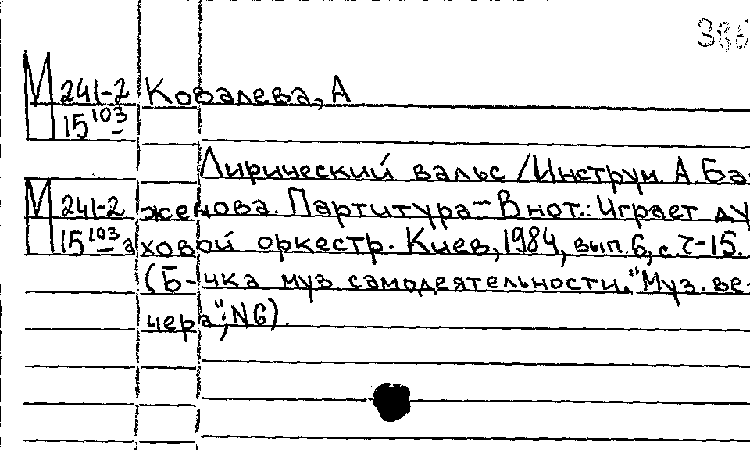 386
М 241-2 Ковалева, А
15 103
Лирический вальс /Инструм. А. Ба-
М 241-2 женова. Партитура - В нот.: Играет ду
15 103 а ховой оркестр. Киев, 1984, вып. 6, с. 7-15.
(Б-чка муз. самодеятельности. "Муз. ве-
чера", N6).